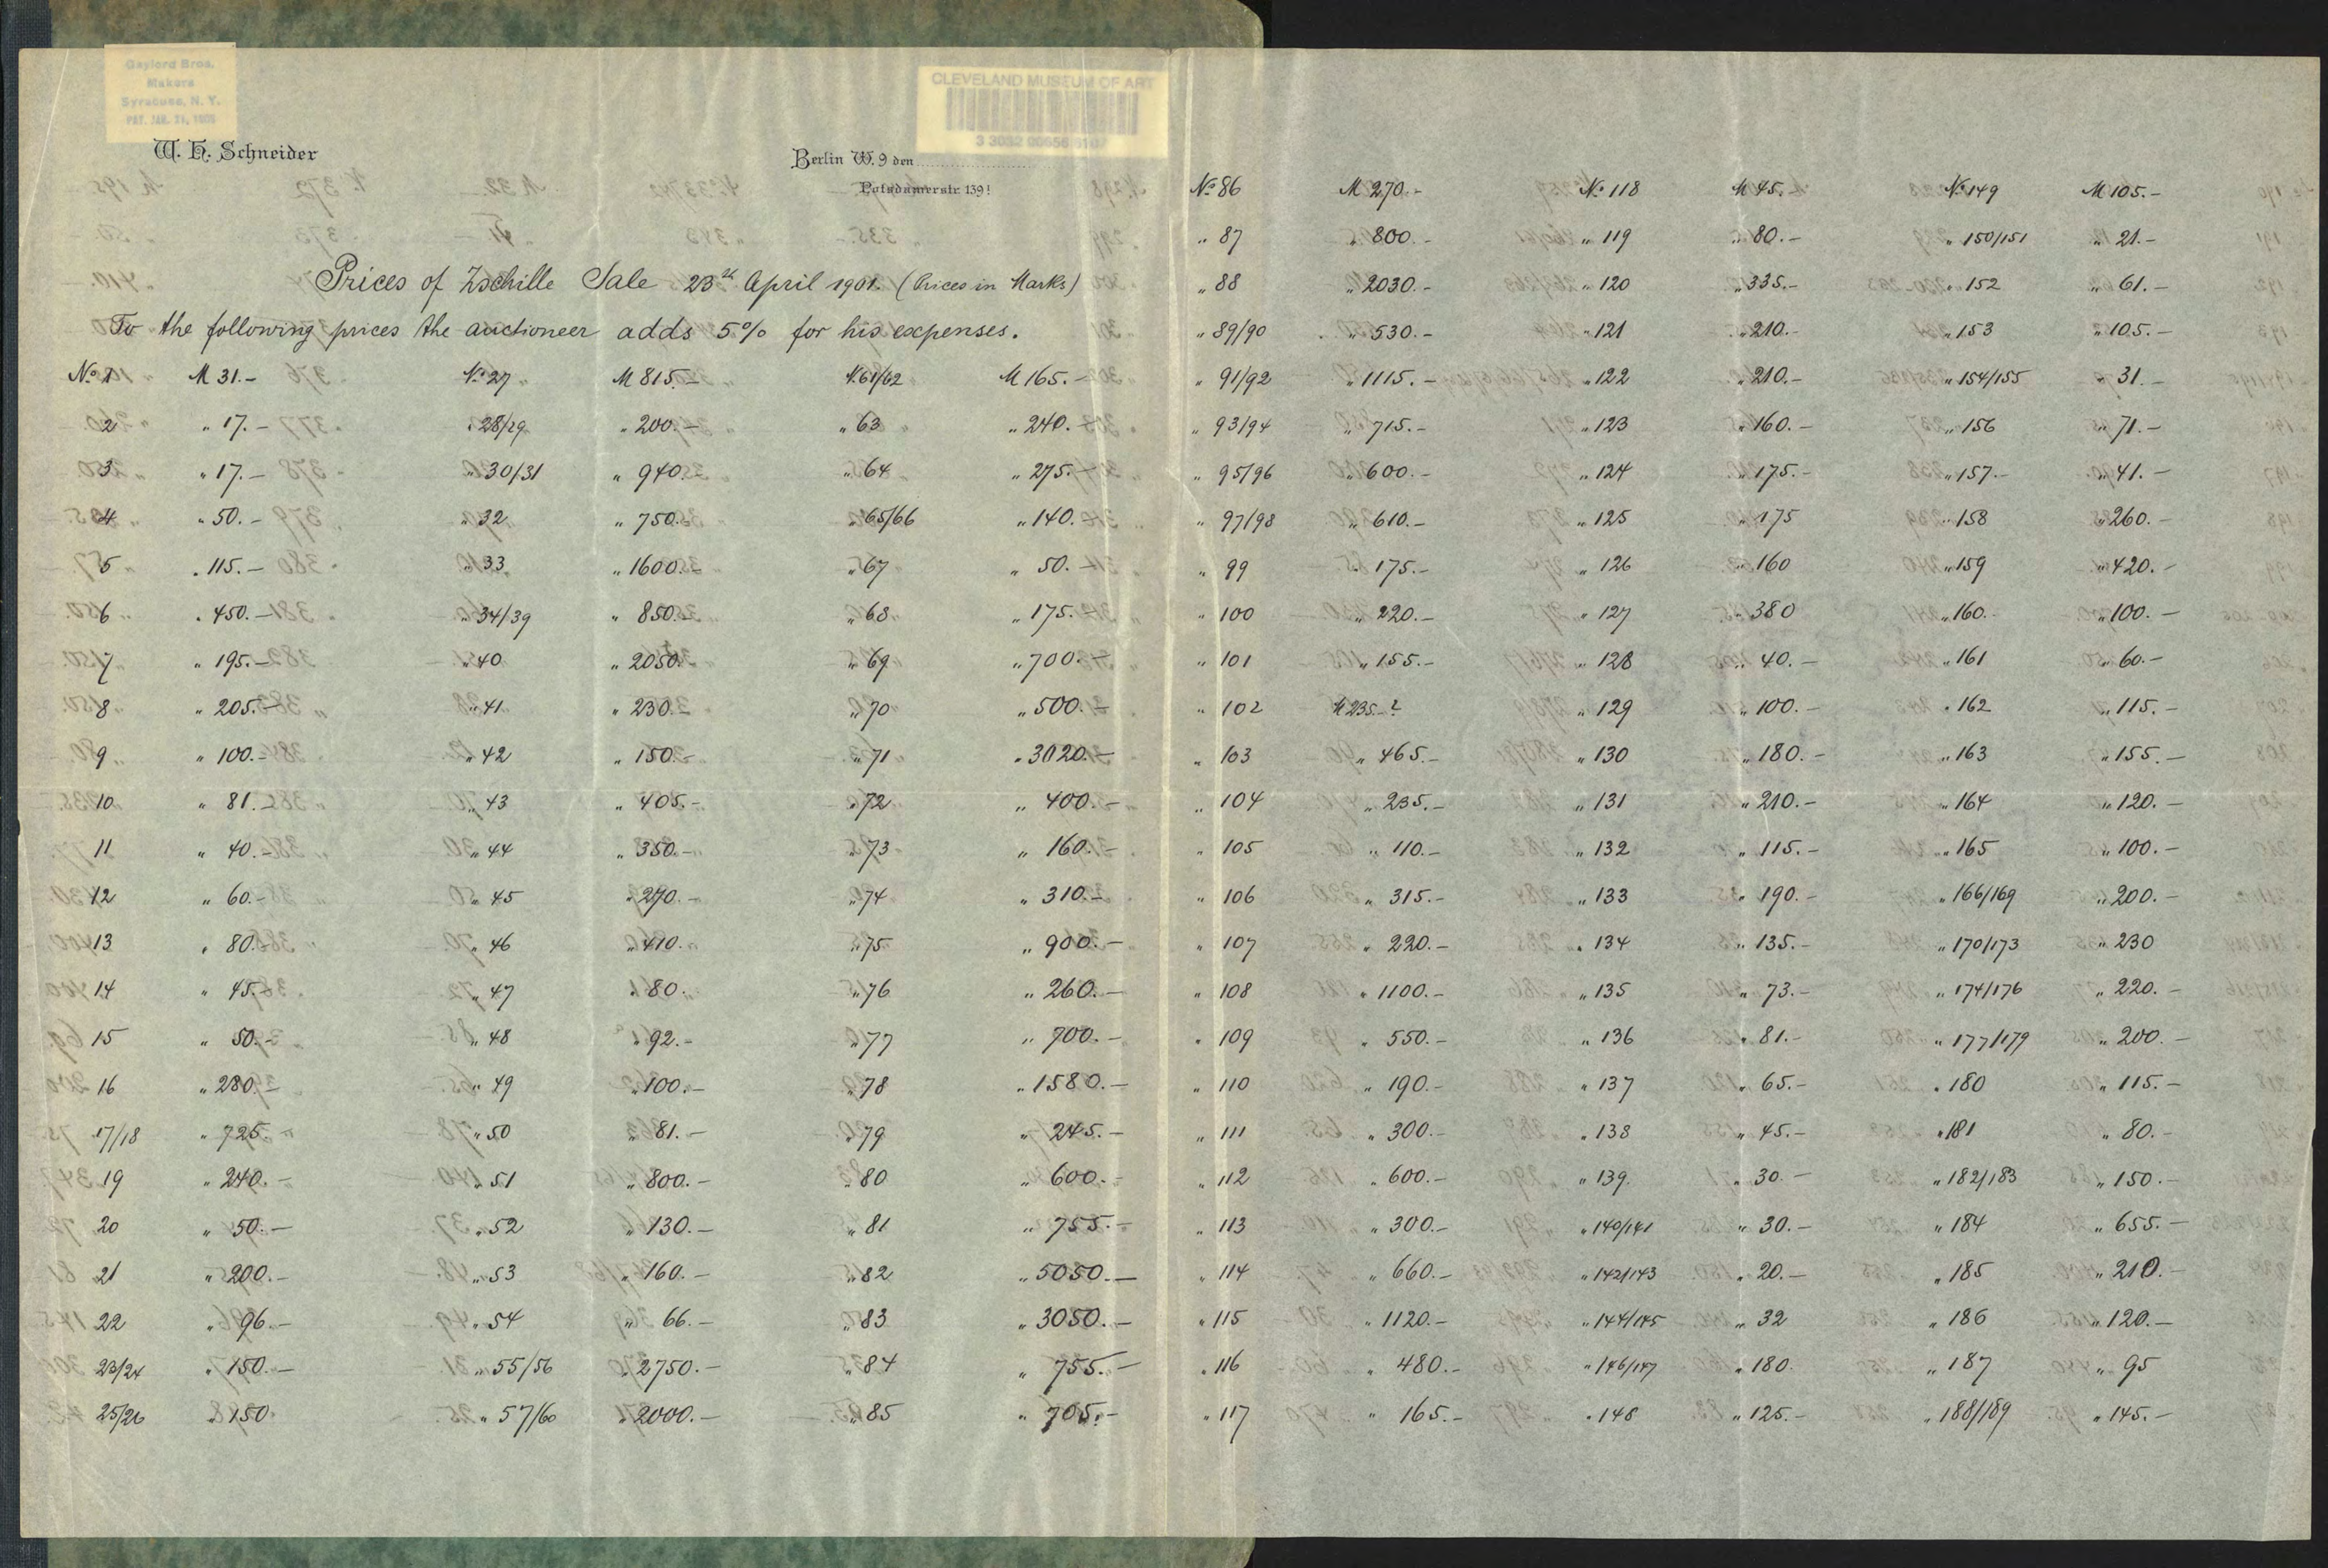 Gaylord Bros.
Makers
Syracuse, N. Y.
PAT. JAN. 21, 1908
CLEVELAND MUSEUM OF ART
W. H. Schneider
Berlin W. 9 den
Potsdamerstr. 139!
Prices of Zschille Sale 23d April 1901. (Prices in Marks)
To the following prices the auctioneer adds 5% for his expenses.
No. 1 M 31.- No. 27 M 815.- N. 61/62 M 165.-
2 " 17.- " 28/29 " 200.- " 63 " 240.-
3 " 17.- " 30/31 " 940.- " 64 " 275.-
4 " 50.- " 32 " 750.- " 65/66 " 140.-
5 " 115.- " 33 " 1600.- " 67 " 50.-
6 " 450.- " 34/39 " 850.- " 68 " 175.-
7 " 195.- " 40 " 2050.- " 69 " 700.-
8 " 205.- " 41 " 230.- " 70 " 500.-
9 " 100.- " 42 " 150.- " 71 " 3020.-
10 " 81.- " 43 " 405.- " 72 " 400.-
11 " 40.- " 44 " 350.- " 73 " 160.-
12 " 60.- " 45 " 270.- " 74 " 310.-
13 " 80.- " 46 " 410.- " 75 " 900.-
14 " 45.- " 47 " 80.- " 76 " 260.-
15 " 50.- " 48 " 92.- " 77 " 700.-
16 " 280.- " 49 " 100.- " 78 " 1580.-
17/18 " 725.- " 50 " 81.- " 79 " 245.-
19 " 240.- " 51 " 800.- " 80 " 600.-
20 " 50.- " 52 " 130.- " 81 " 755.-
21 " 200.- " 53 " 160.- " 82 " 5050.-
22 " 96.- " 54 " 66.- " 83 " 3050.-
23/24 " 150.- " 55/56 " 2750.- " 84 " 755.-
25/26 " 150 " 57/60 " 2000.- " 85 " 705.-
No. 86 M 270.- No. 118 M 45.- No. 149 M 105.-
" 87 " 800.- " 119 " 80.- " 150/151 " 21.-
" 88 " 2030.- " 120 " 335.- " 152 " 61.-
" 89/90 " 530.- " 121 " 210.- " 153 " 105.-
" 91/92 " 1115.- " 122 " 210.- " 154/155 " 31.-
" 93/94 " 715.- " 123 " 160.- " 156 " 71.-
" 95/96 " 600.- " 124 " 175.- " 157.- " 41.-
" 97/98 " 610.- " 125 " 175 " 158 " 260.-
" 99 " 175.- " 126 " 160 " 159 " 420.-
" 100 " 220.- " 127 " 380 " 160.- " 100.-
" 101 " 155.- " 128 " 40.- " 161 " 60.-
" 102 M 235.-? " 129 " 100.- " 162 " 115.-
" 103 " 465.- " 130 " 180.- " 163 " 155.-
" 104 " 235.- " 131 " 210.- " 164 " 120.-
" 105 " 110.- " 132 " 115.- " 165 " 100.-
" 106 " 315.- " 133 " 190.- " 166/169 " 200.-
" 107 " 220.- " 134 " 135.- " 170/173 " 230
" 108 " 1100.- " 135 " 73.- " 174/176 " 220.-
" 109 " 550.- " 136 " 81.- " 177/179 " 200.-
" 110 " 190.- " 137 " 65.- " 180 " 115.-
" 111 " 300.- " 138 " 45.- " 181 " 80.-
" 112 " 600.- " 139. " 30.- " 182/183 " 150.-
" 113 " 300.- " 140/141 " 30.- " 184 " 655.-
" 114 " 660.- " 142/143 " 20.- " 185 " 210.-
" 115 " 1120.- " 144/145 " 32 " 186 " 120.-
" 116 " 480.- " 146/147 " 180. " 187 " 95
" 117 " 165.- " 148 " 125.- " 188/189 " 145.-